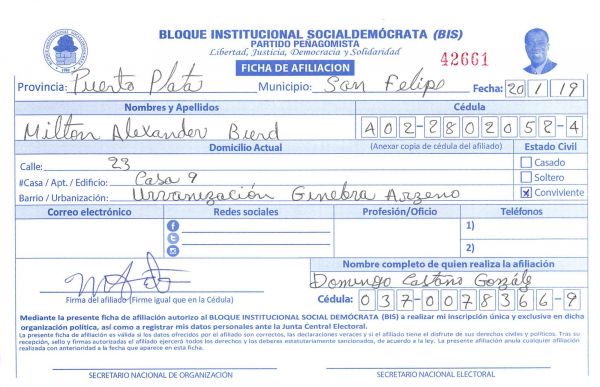 BLOQUE INSTITUCIONAL SOCIALDEMÓCRATA (BIS)
PARTIDO PEÑAGOMISTA
Libertad, Justicia, Democracia y Solidaridad
42661
FICHA DE AFILIACION
Provincia: Puerto Plata Municipio: San Felipe Fecha: 20 1 19
Nombres y Apellidos Cédula
Milton Alexander Bierd 402-2802052-4
Domicilio Actual (Anexar copia de cédula del afiliado) Estado Civil
Calle: 23 Casado
#Casa / Apt. / Edificio: Casa 9 Soltero
Barrio / Urbanización: Urvanización Ginebra Arzeno X Conviviente
Correo electrónico Redes sociales Profesión/Oficio Teléfonos
1)
2)
Nombre completo de quien realiza la afiliación
Domingo Castaño Gonzálz
Firma del afiliado (Firme igual que en la Cédula) Cédula: 037-0078366-9
Mediante la presente ficha de afiliación autorizo al BLOQUE INSTITUCIONAL SOCIAL DEMÓCRATA (BIS) a realizar mi inscripción única y exclusiva en dicha
organización política, así como a registrar mis datos personales ante la Junta Central Electoral.
La presente ficha de afiliación es válida si los datos ofrecidos por el afiliado son correctos, las declaraciones veraces y si el afiliado tiene el disfrute de sus derechos civiles y políticos. Tras su
recepción, sello y firmas autorizadas el afiliado ejercerá todos los derechos y los deberes estatutariamente sancionados, de acuerdo a la ley. La presente afiliación anula cualquier afiliación
realizada con anterioridad a la fecha que aparece en esta ficha.
SECRETARIO NACIONAL DE ORGANIZACIÓN SECRETARIO NACIONAL ELECTORAL